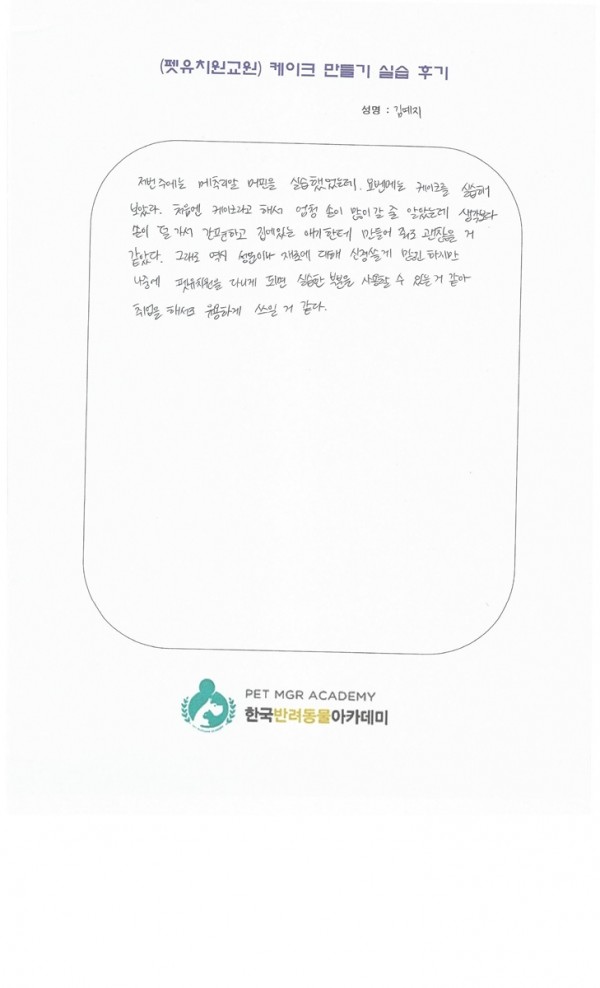 (펫유치원교원) 케이크 만들기 실습 후기
성명 : 김예지
저번 주에는 메추리알 머핀을 실습했었는데, 요번에는 케이크를 실습해
보았다. 처음엔 케이크라고 해서 엄청 손이 많이 갈 줄 알았는데 생각보다
손이 덜 가서 간편하고 집에있는 애기한테 만들어 줘도 괜찮을 거
같았다. 그래도 역시 성분이나 재료에 대해 신경쓸게 많긴 하지만
나중에 펫유치원을 다니게 되면 실습한 부분을 사용할 수 있는 거 같아
취업을 해서도 유용하게 쓰일 거 같다.
PET MGR ACADEMY
한국반려동물아카데미